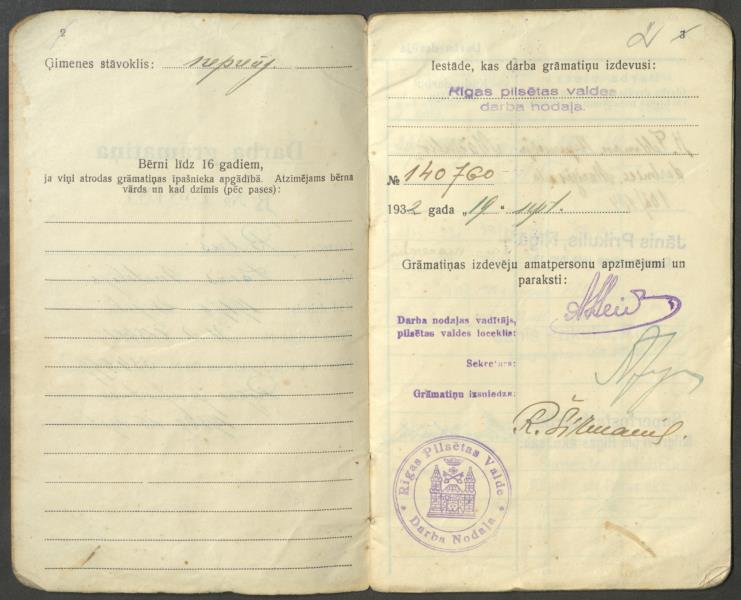 2
Ģimenes stāvoklis: neprec.
Bērni līdz 16 gadiem,
ja viņi atrodas grāmatiņas īpašnieka apgādībā. Atzīmējams bērna
vārds un kad dzimis (pēc pases):
3
Iestāde, kas darba grāmatiņu izdevusi:
Rīgas pilsētas valdes
darba nodaļa.
№ 140760
1932 gada „19“ sept.
Grāmatiņas izdevēju amatpersonu apzīmējumi un
paraksti:
Darba nodaļas vadītājs,
pilsētas valdes loceklis:
Sekretārs:
Grāmatiņu izsniedza:
Rīgas Pilsētas Valde
Darba Nodaļa
Jānis Prikulis, Rīgā